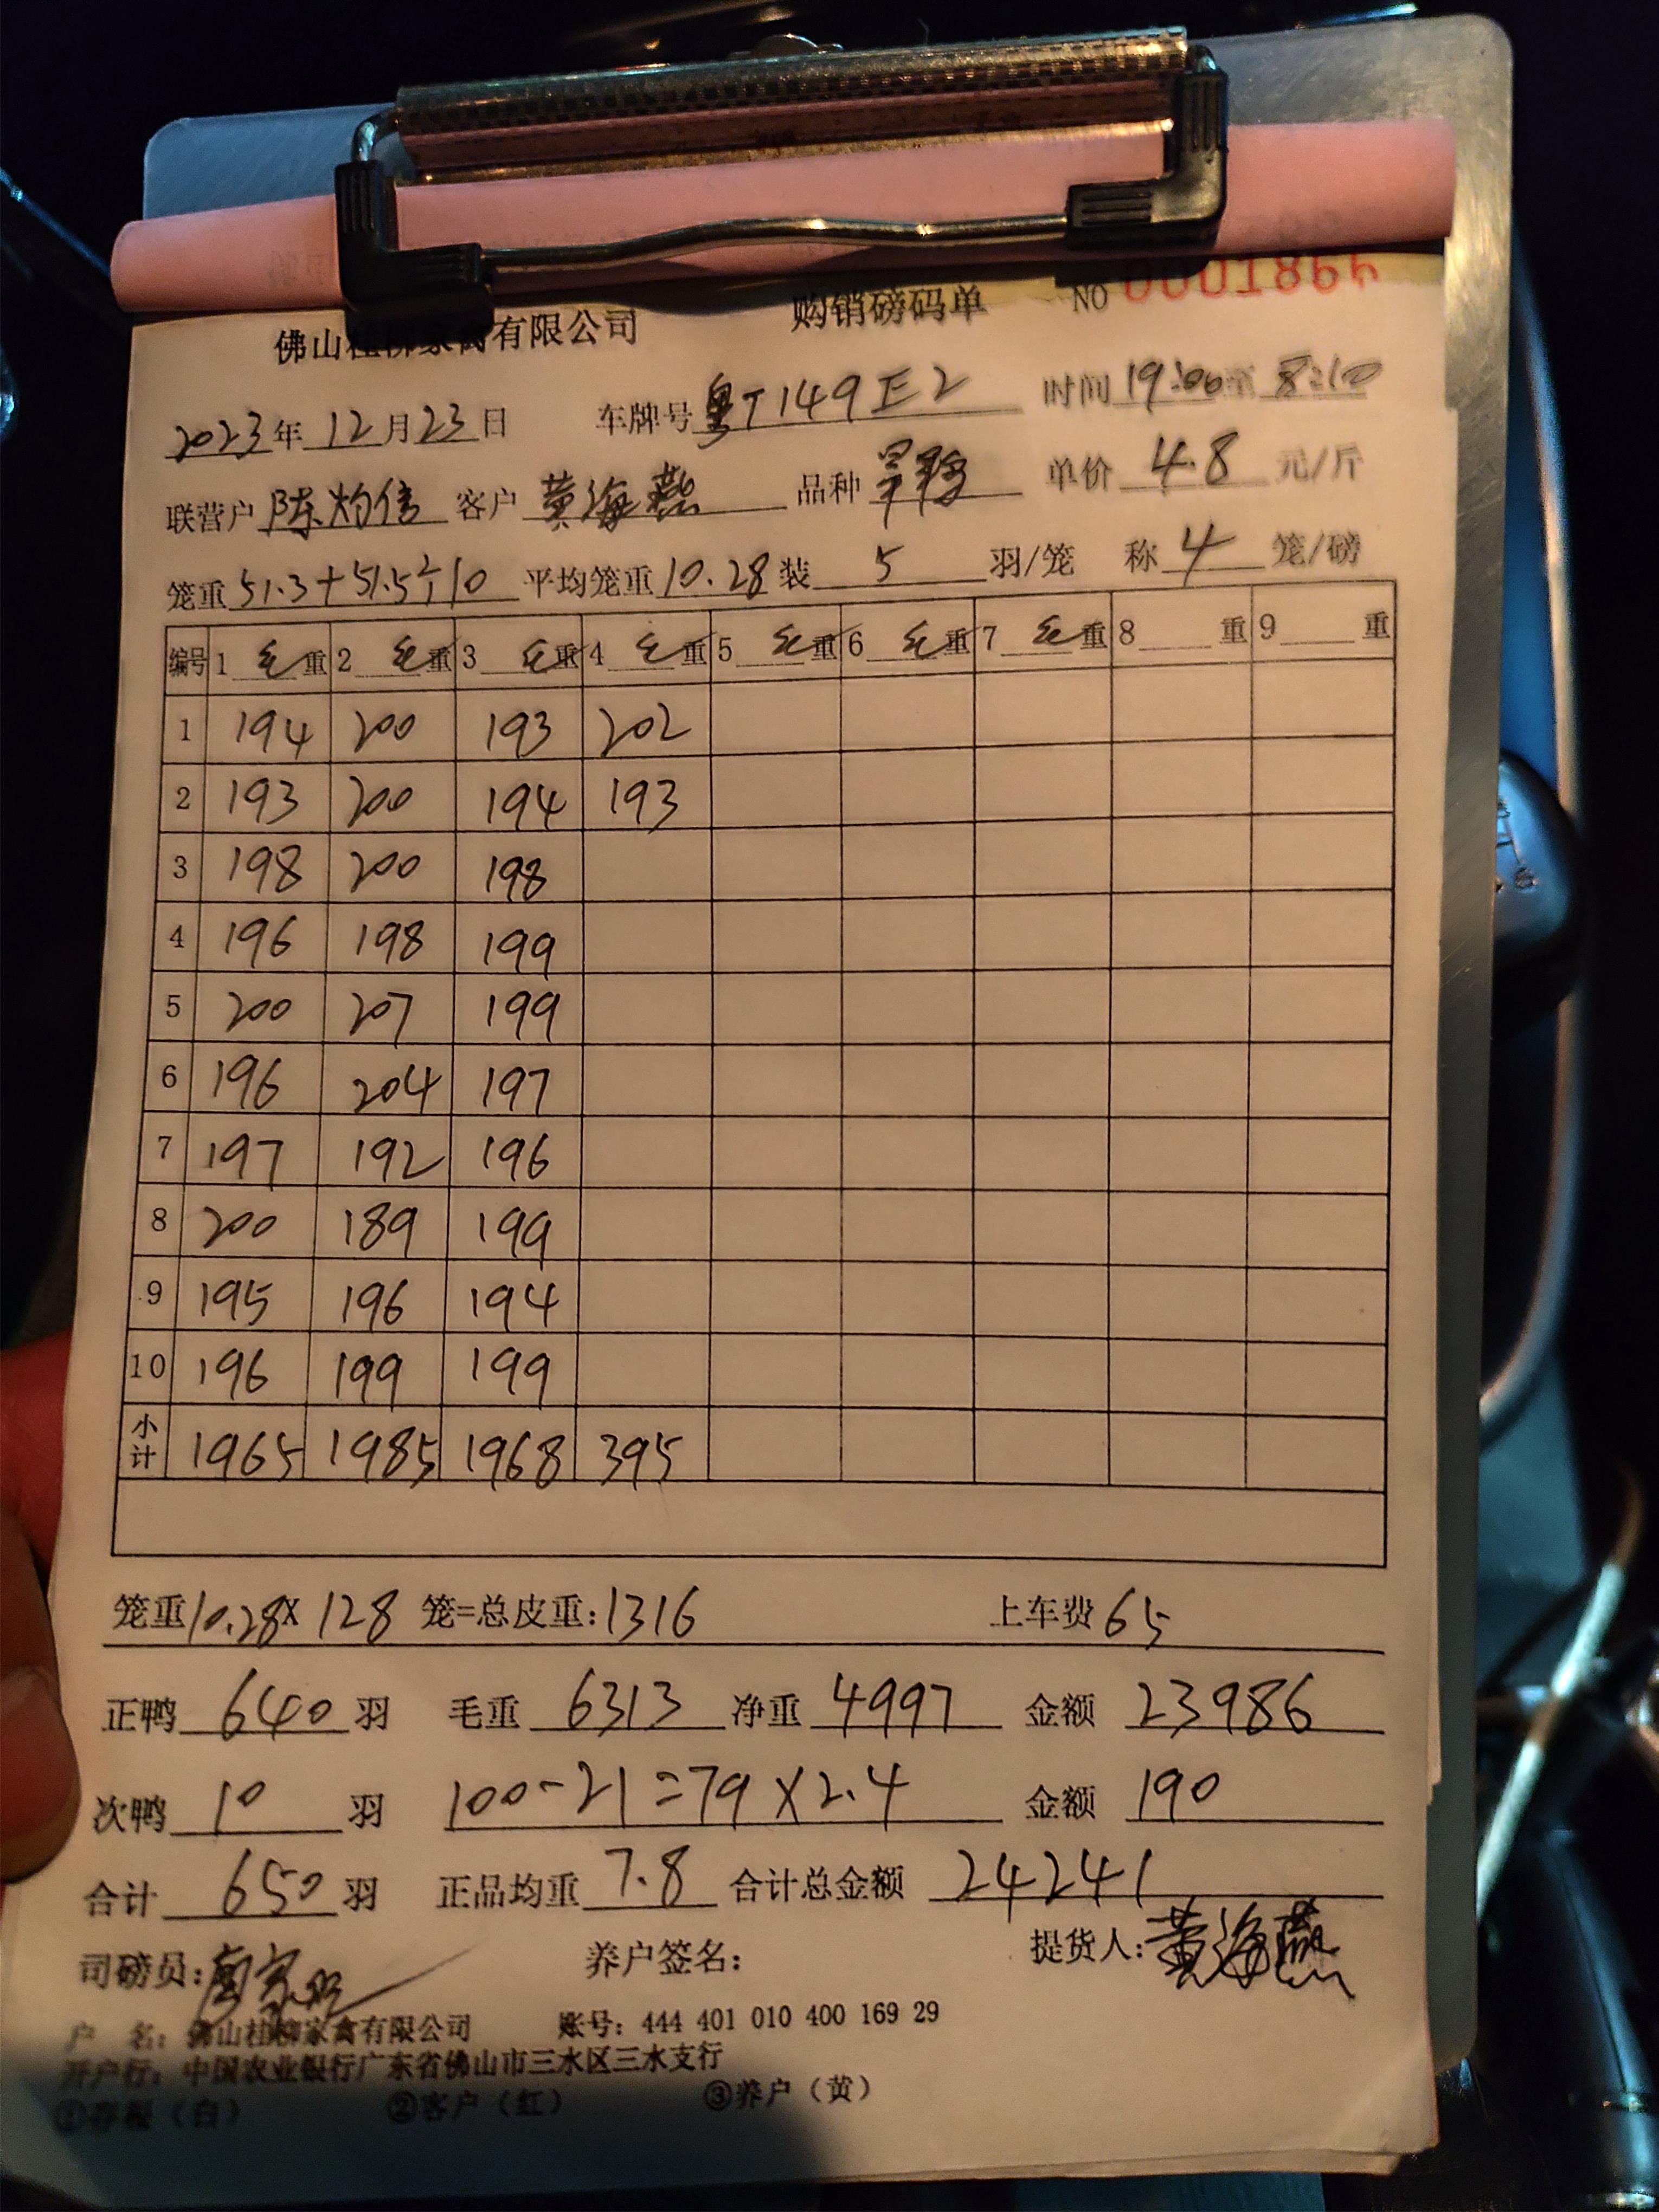 佛山桂柳家禽有限公司 购销磅码单 NO 0001864
2023年 12月23日 车牌号 粤T149E2 时间 19:00至 8:10
联营户 陈灼信 客户 黄海燕 品种 单价 4.8 元/斤
笼重 51.3+51.5÷10 平均笼重 10.28 装 5 羽/笼 称 4 笼/磅
编号 1 毛重 2 毛重 3 毛重 4 毛重 5 毛重 6 毛重 7 毛重 8 重 9 重
1 194 200 193 202
2 193 200 194 193
3 198 200 198
4 196 198 199
5 200 207 199
6 196 204 197
7 197 192 196
8 200 189 199
9 195 196 194
10 196 199 199
小计 1965 1985 1968 395
笼重10.28X 128 笼=总皮重:1316 上车费 65
正鸭 640 羽 毛重 6313 净重 4997 金额 23986
次鸭 10 羽 100-21=79X2.4 金额 190
合计 650 羽 正品均重 7.8 合计总金额 24241
司磅员: 养户签名: 提货人:黄海燕
户 名: 佛山桂柳家禽有限公司 账号: 444 401 010 400 169 29
开户行: 中国农业银行广东省佛山市三水区三水支行
①存根（白） ②客户（红） ③养户（黄）